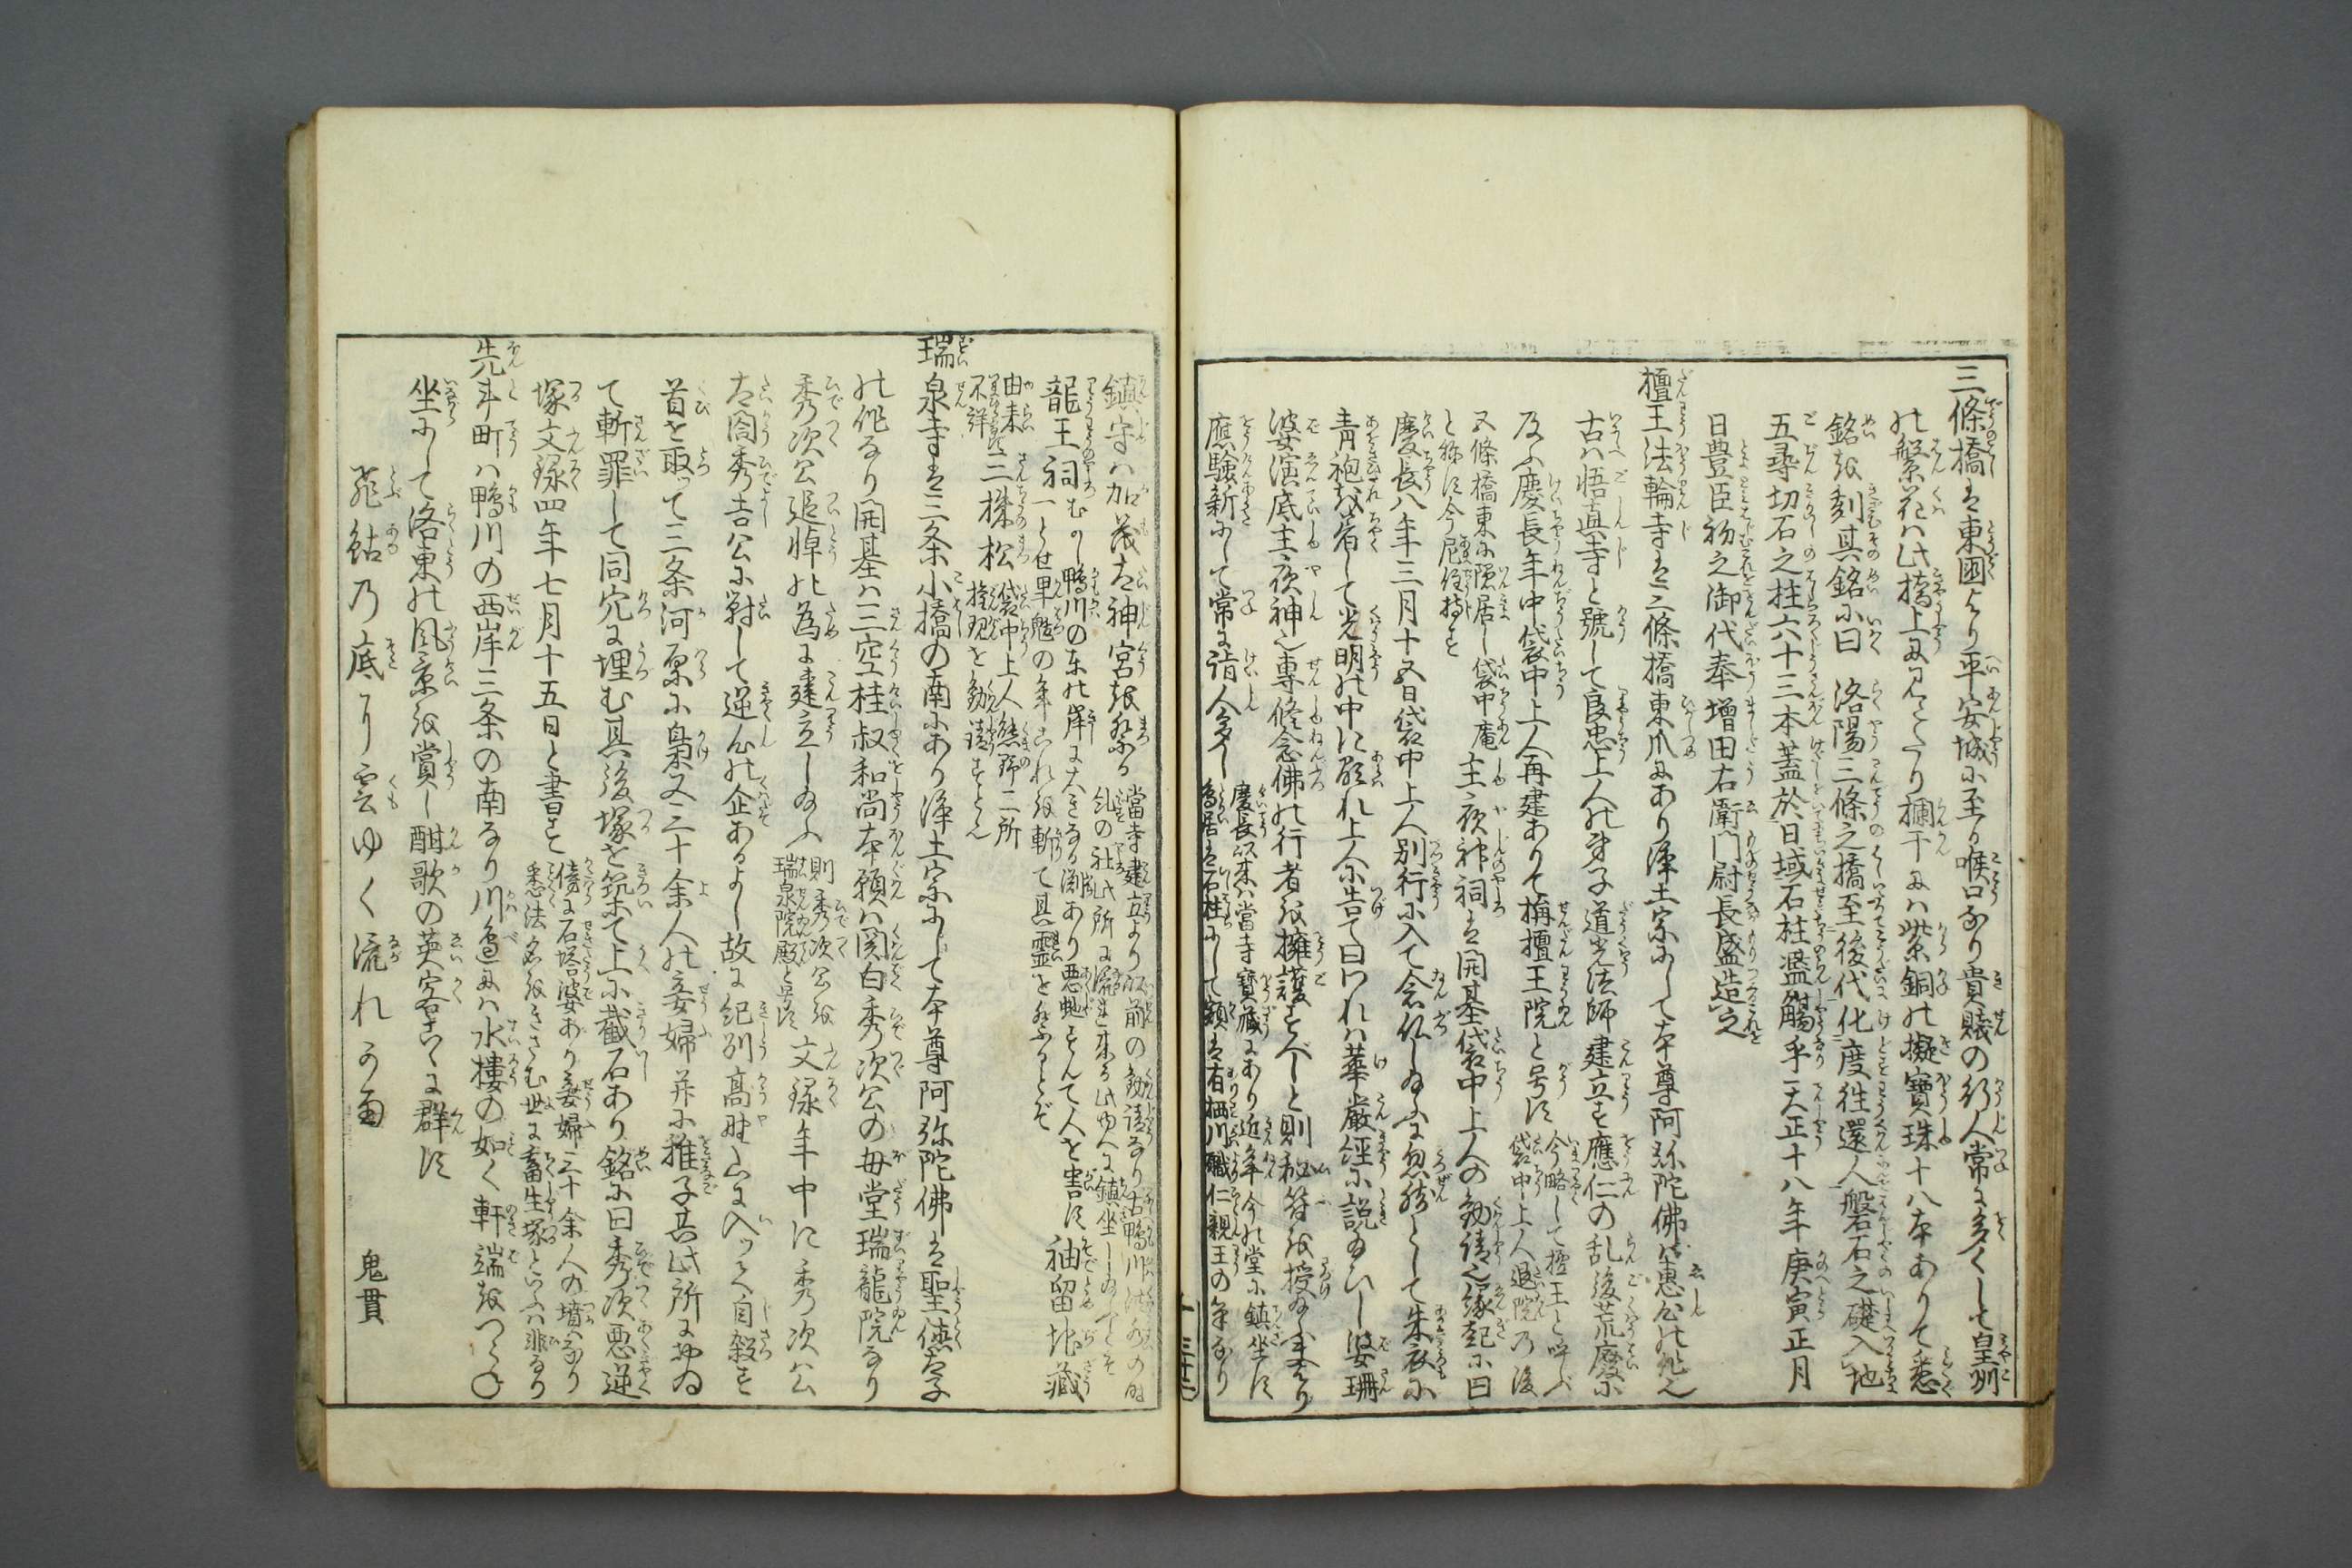 三條橋は東國より平安城に至る喉口なり貴賤の行人常に多くして皇州
の繁花は此橋上に見えたり欄干には紫銅の擬寳珠十八本ありて悉
銘を刻其銘に曰 洛陽三條之橋至後代化度徃還人盤石之礎入地
五尋切石之柱六十三本蓋於日域石柱濫觴乎天正十八年庚寅正月
日豊臣初之御代奉増田右衛門尉長盛造之
檀王法輪寺は三條橋東爪にあり浄土宗にして本尊阿弥陀佛は惠心の作也
古は悟真寺と號して良忠上人の弟子道光法師建立す應仁の乱後荒廢に
及ふ慶長年中袋中上人再建ありて栴檀王院と号す今略して檀王と呼ぶ
袋中上人退院乃後
五條橋東に隠居し袋中庵
と称す今尼住持す
主夜神祠は開基袋中上人の勧請也縁起に曰
慶長八年三月十五日袋中上人別行に入て念仏し給ふに忽然として朱衣に
青袍を着して光明の中に顕れ上人に告て曰われは華厳經に説給ひし婆珊
婆演底主夜神也専修念佛の行者を擁護すべしと則秘符を授給ふ夫より
應驗新にして常に詣人多し
慶長以来は當寺寳蔵にあり近年今の堂に鎮坐す
鳥居は石柱にして額は有栖川職仁親王の筆なり
鎮守は加茂太神宮を祭る
當寺建立より以前の勧請なり古鴨川洪水の時
糺の社此所に流れ来る此ゆへに鎮坐し給ふとぞ
龍王祠むかし鴨川の東の岸に大きなる渕あり悪虵すんて人を害す
一とせ旱魃の年これを斬て其靈を祭るとぞ
袖留地蔵
由来
不詳
三株松
袋中上人熊野二所
権現を勧請すとぞ
瑞泉寺は三条小橋の南にあり浄土宗にして本尊阿弥陀佛は聖徳太子
の作なり開基は三空桂叔和尚本願は関白秀次公の母堂瑞龍院なり
秀次公追悼の為に建立し給ふ
則秀次公を
瑞泉院殿と号す
文禄年中に秀次公
太閤秀吉公に対して逆心の企ありし故に紀刕高野山に入って自殺す
首を取って三条河原に梟又三十余人の妾婦并に稚子其此所におゐ
て斬罪して同穴に埋む其後塚を築て上に截石あり銘に曰秀次悪逆
塚文禄四年七月十五日と書す
傍に石塔婆あり妾婦三十余人の墳なり
悉法名をきざむ世に畜生塚といふは非なり
先斗町は鴨川の西岸三条の南なり川邉には水樓の如く軒端をつらね
坐にして洛東の風景を賞し酣歌の英客こゝに群す
飛鮎乃底に雲ゆく流れかな 鬼貫